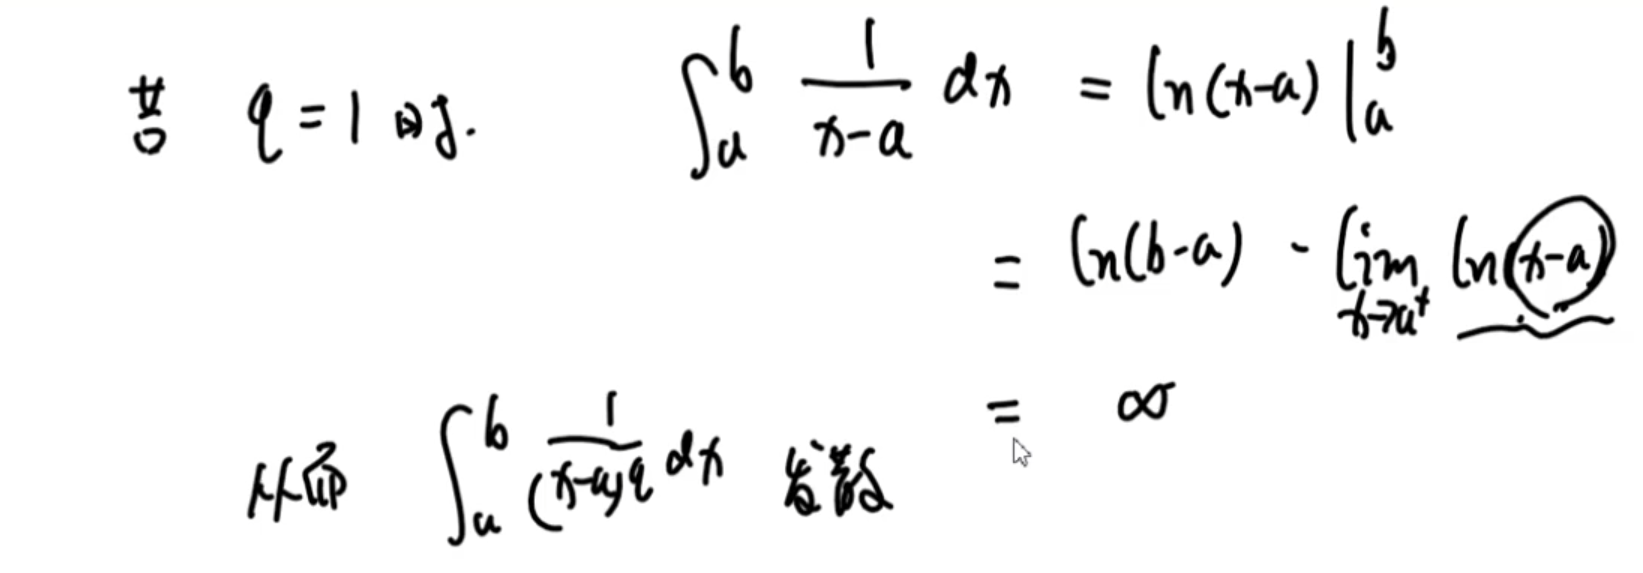 若 q = 1 时. ∫_a^b 1/(x-a) dx = ln(x-a) |_a^b
= ln(b-a) - lim_{x→a⁺} ln(x-a)
= ∞
从而 ∫_a^b 1/(x-a)^q dx 发散